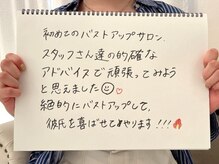 初めてのバストアップサロン.
スタッフさん達の的確な
アドバイスで頑張ってみよう
と思えました☺♡
絶対にバストアップして、
彼氏を喜ばせてやります!!!🔥